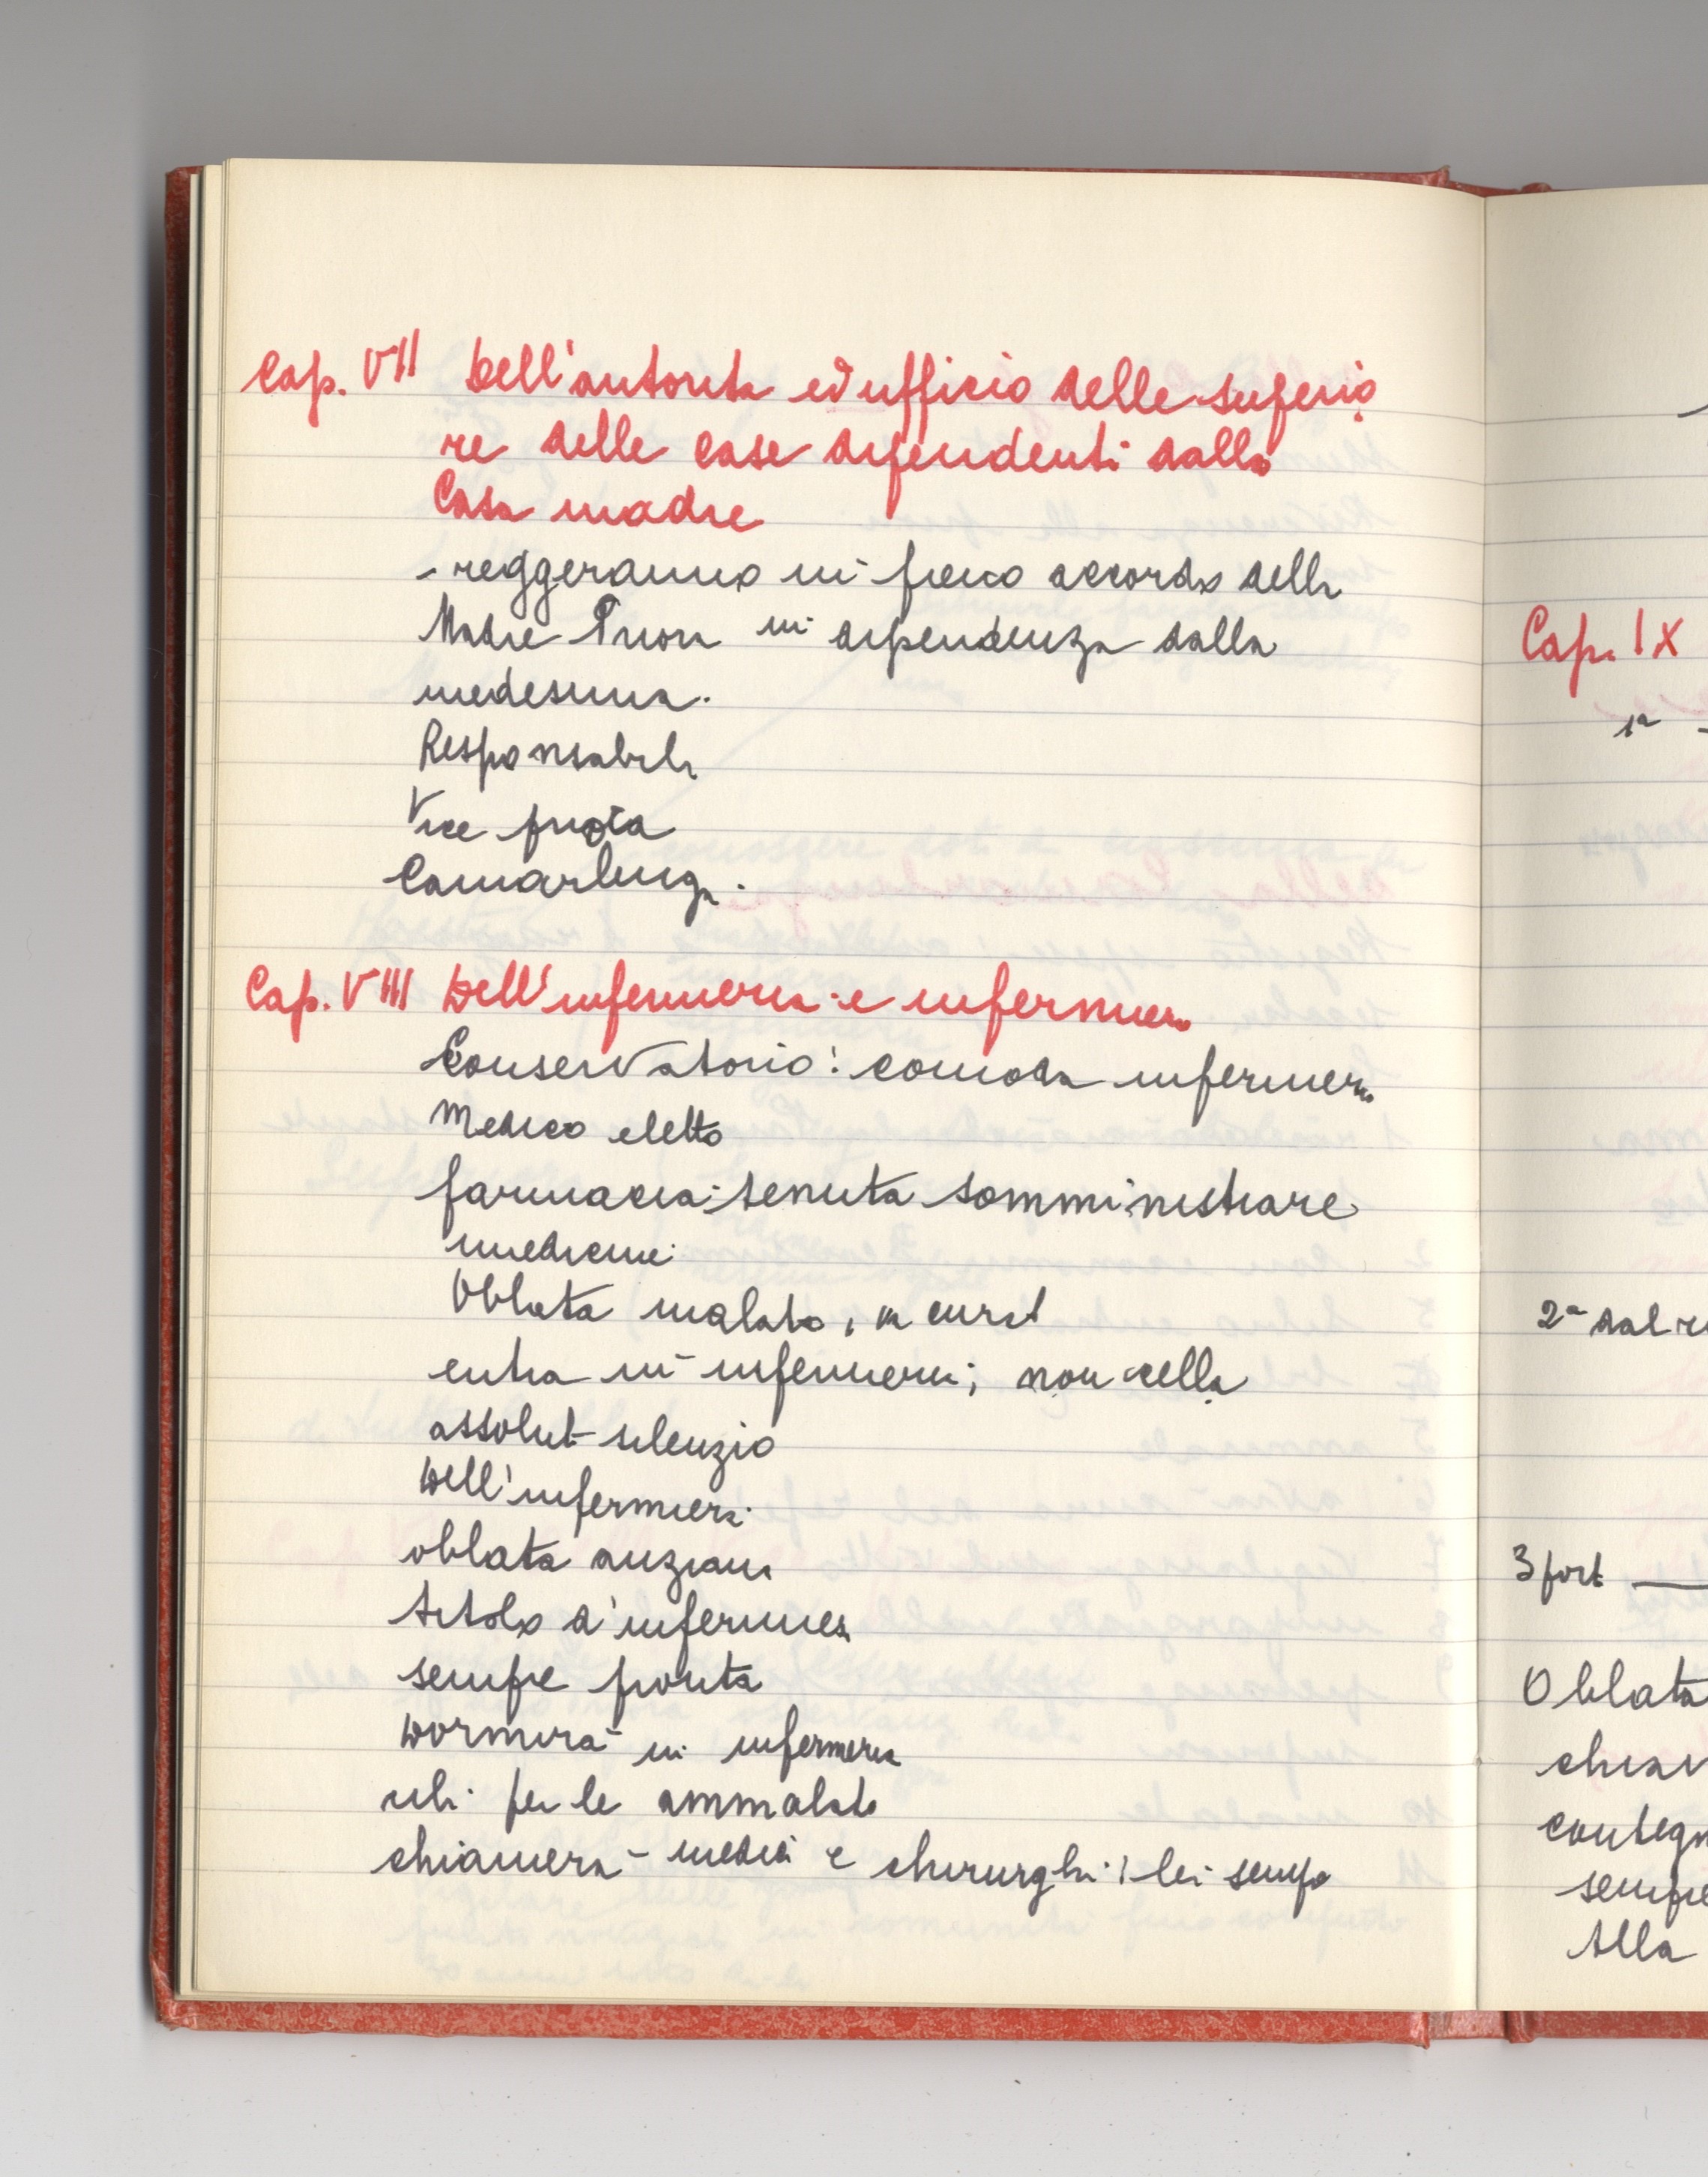 Cap. VII Dell'autorita ed ufficio delle superio
re delle case dipendenti dalla
Casa madre
- reggeranno in pieno accordo della
Madre Priora in dipendenza dalla
medesima.
Responsabili
Vice priora
Camarlinga.
Cap. VIII Dell'infermeria e infermiera
Conservatorio: comoda infermeria
Medico eletto
farmacia: tenuta somministrare
medicine
Oblata malata,
entra in infermeria; non cella
assolut silenzio
Dell'infermiera
oblata anziana
titolo d'infermiera
sempre pronta
Dormirà in infermeria
per le ammalate
chiamerà medici e chirurghi: lei sempre
Cap. IX
1ª
2ª dal
3 fort
Oblata
sempre
Alla